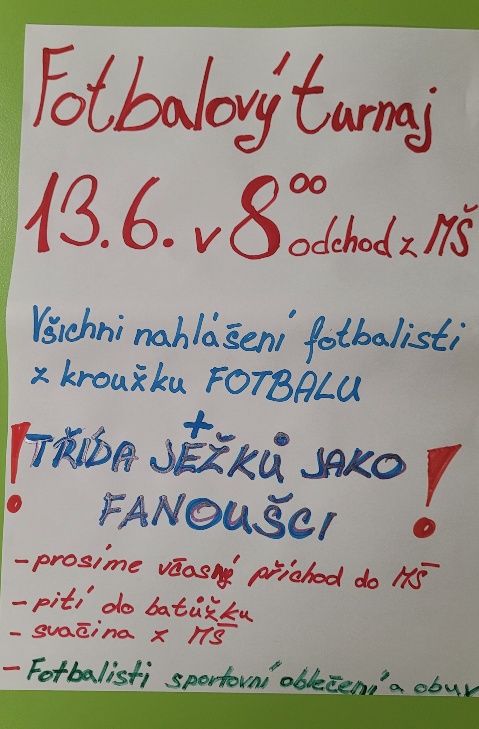 Fotbalový turnaj
13.6. v 8⁰⁰ odchod z MŠ
Všichni nahlášení fotbalisti
z kroužku FOTBALU
+
! TŘÍDA JEŽKŮ JAKO !
FANOUŠCI
- prosíme včasný příchod do MŠ
- pití do batůžku
- svačina z MŠ
- Fotbalisti sportovní oblečení a obuv